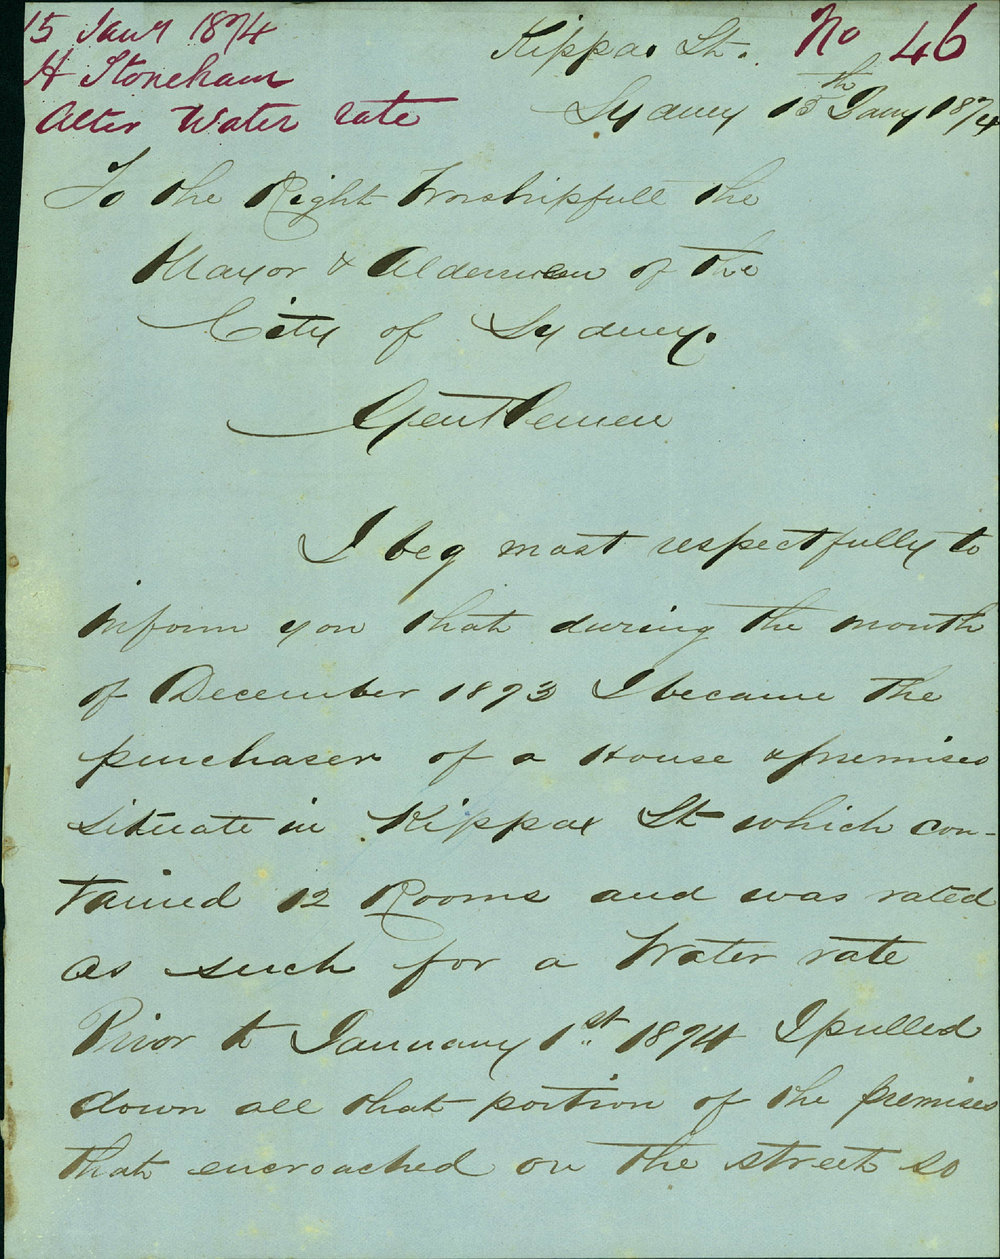 15 Jany 1874
H Stoneham
Alter Water rate
No 46
Kippax St.
Sydney 15th Jany 1874
To the Right Worshipfull the
Mayor & Aldermen of the
City of Sydney.
Gentlemen
I beg most respectfully to
inform you that during the month
of December 1873 I became the
purchaser of a House & premises
situate in Kippax St which con-
tained 12 Rooms and was rated
as such for a Water rate
Prior to January 1st 1874 I pulled
down all that portion of the premises
that encroached on the street so